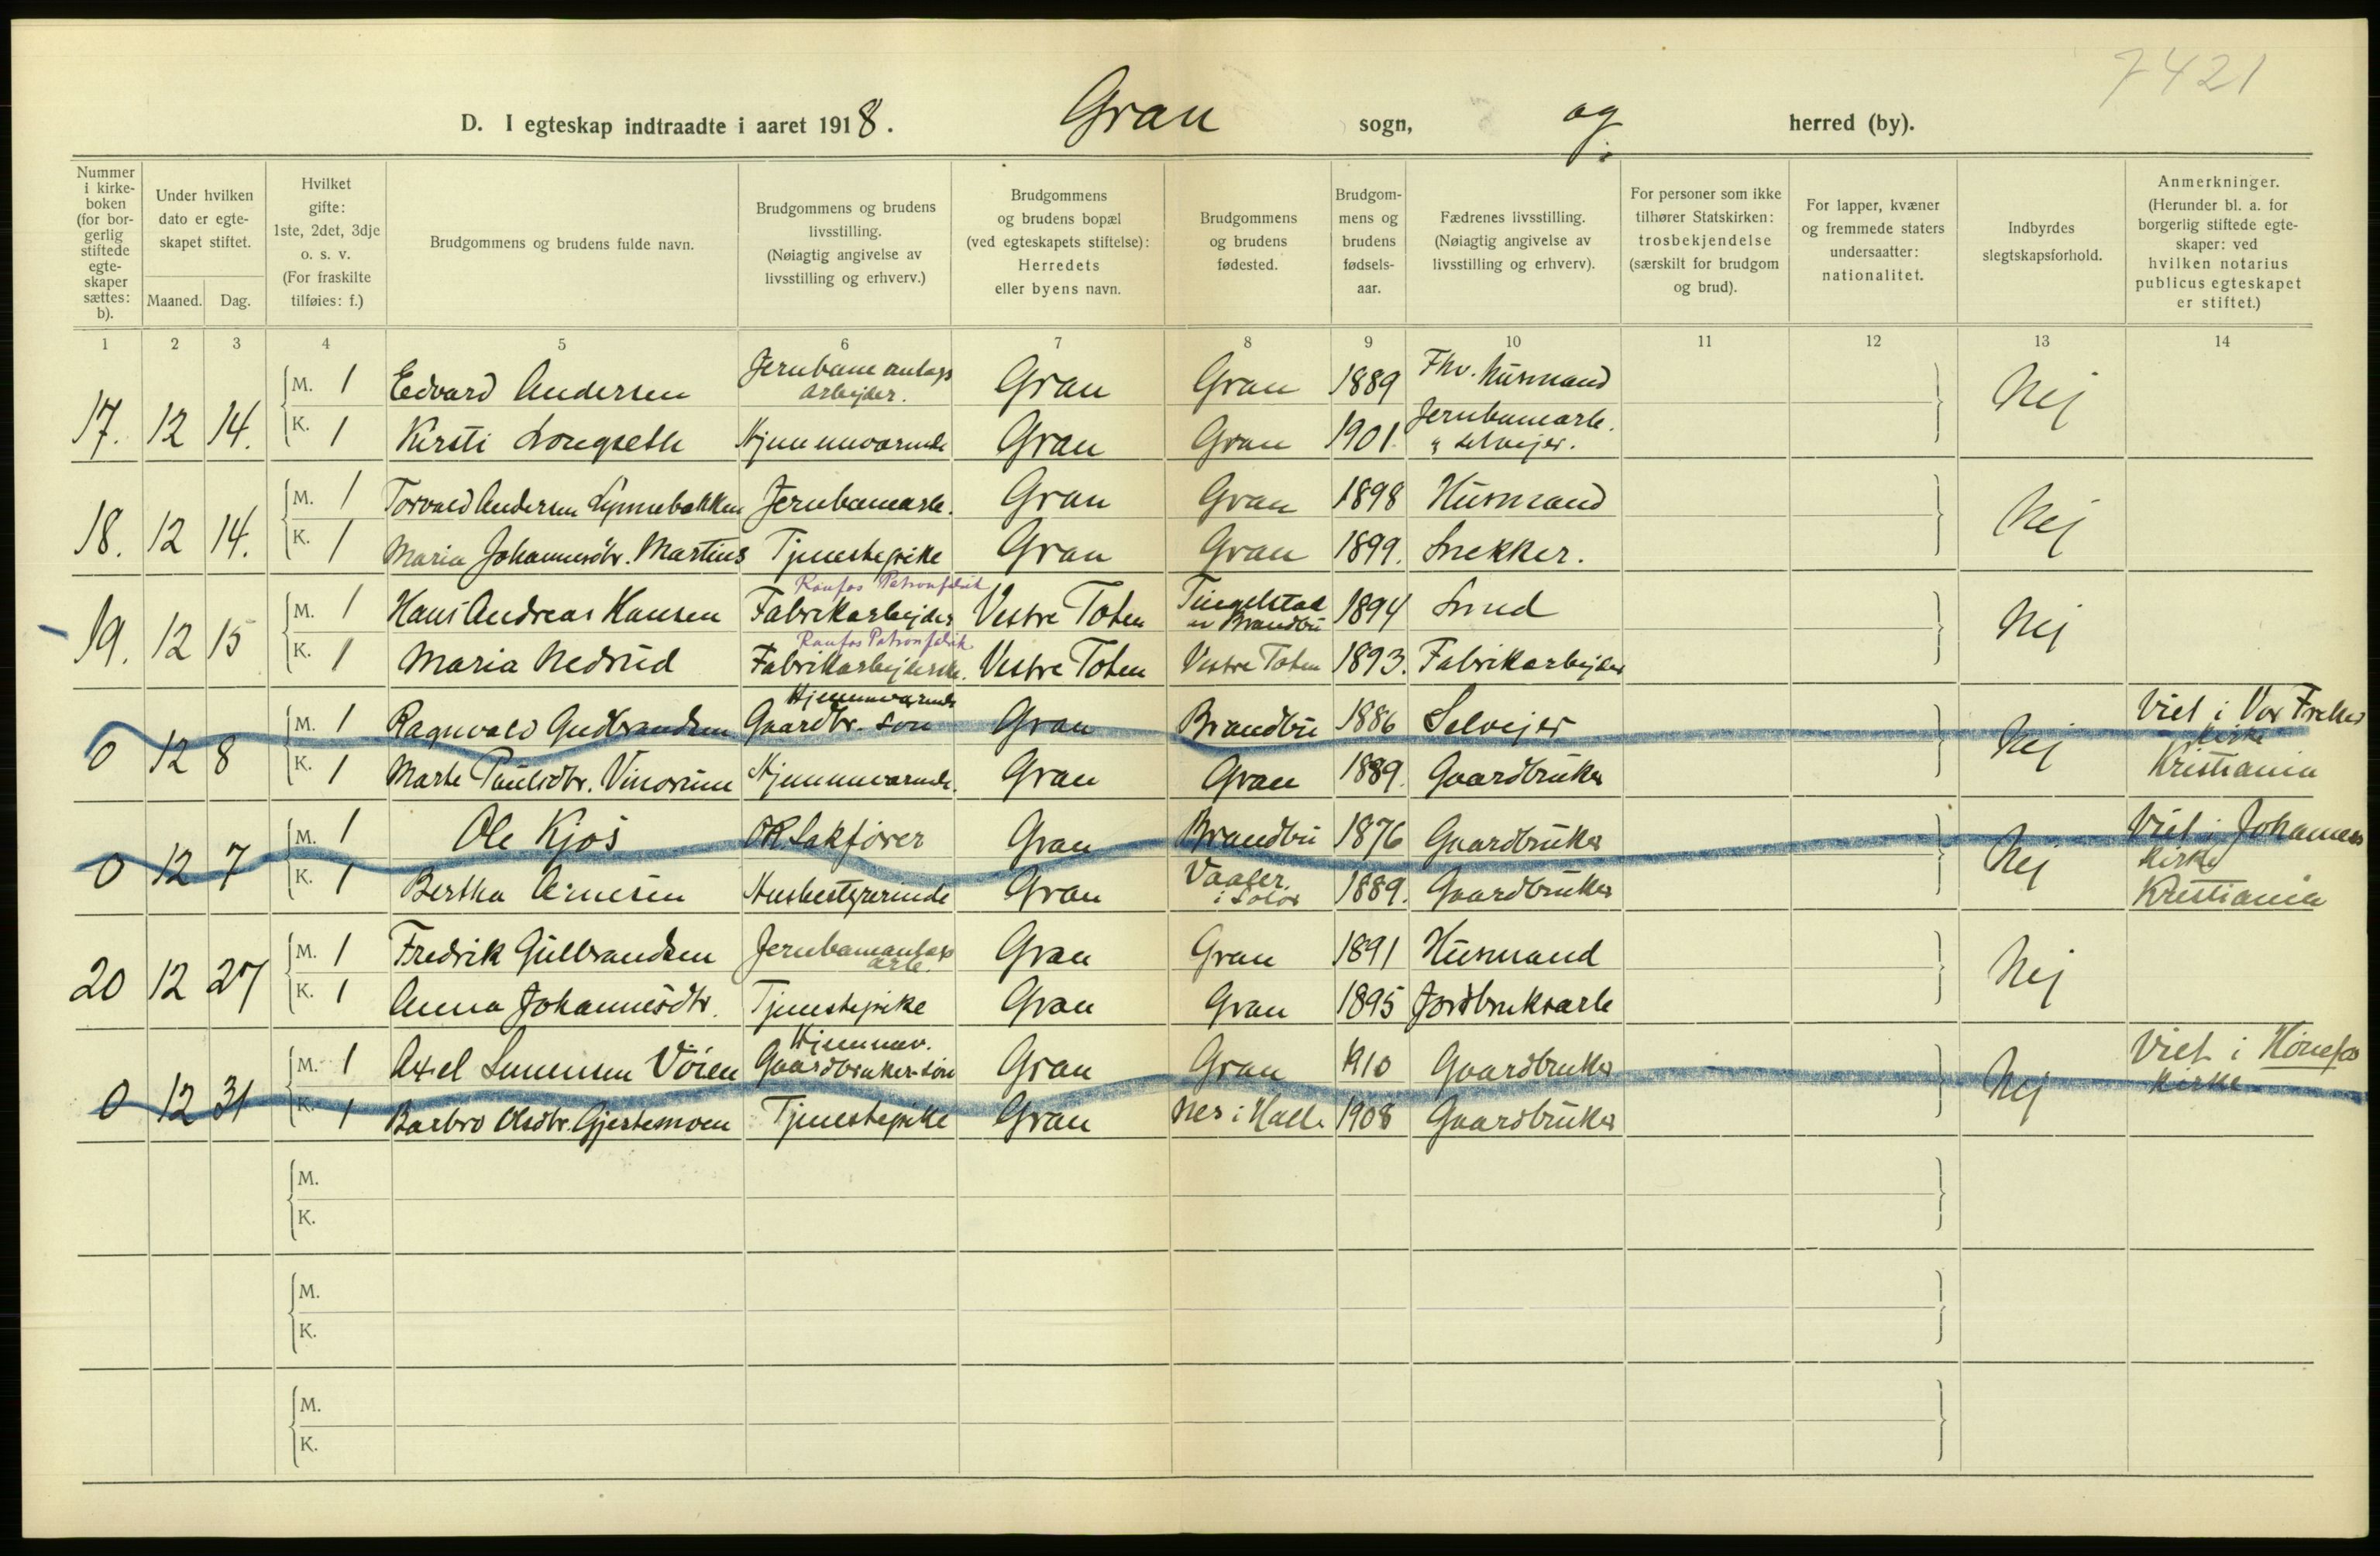 7421
D. I egteskap indtraadte i aaret 1918. Gran sogn, og herred (by).
Nummer i kirkeboken (for borgerlig stiftede egteskaper sættes: b).
Under hvilken dato er egteskapet stiftet.
Maaned. Dag.
Hvilket gifte: 1ste, 2det, 3dje o. s. v. (For fraskilte tilføies: f.)
Brudgommens og brudens fulde navn.
Brudgommens og brudens livsstilling. (Nøiagtig angivelse av livsstilling og erhverv.)
Brudgommens og brudens bopæl (ved egteskapets stiftelse): Herredets eller byens navn.
Brudgommens og brudens fødested.
Brudgommens og brudens fødselsaar.
Fædrenes livsstilling. (Nøiagtig angivelse av livsstilling og erhverv).
For personer som ikke tilhører Statskirken: trosbekjendelse (særskilt for brudgom og brud).
For lapper, kvæner og fremmede staters undersaatter: nationalitet.
Indbyrdes slegtskapsforhold.
Anmerkninger. (Herunder bl. a. for borgerlig stiftede egteskaper: ved hvilken notarius publicus egteskapet er stiftet.)
1 2 3 4 5 6 7 8 9 10 11 12 13 14
17. 12 14. M. 1 Edvard Andersen Jernbaneanlægs arbejder. Gran Gran 1889 Fhv. Husmand Nej
K. 1 Kirsti Longseth Hjemmeværende Gran Gran 1901. Jernbanearb. " selvejer.
18. 12 14. M. 1 Torvald Andersen Jernbanearb. Gran Gran 1898 Husmand Nej
K. 1 Maria Johannesdtr. Martins Tjenestepike Gran Gran 1899. Snekker.
19. 12 15 M. 1 Hans Andreas Hansen Raufos Patronfabrik Fabrikarbejder Vestre Toten Tingelstad Brandbu 1894 Smed Nej
K. 1 Maria Nedrud Raufos Patronfabrik Fabrikarbejderske. Vestre Toten Vestre Toten 1893. Fabrikarbejder
0 12 8 M. 1 Ragnvald Gudbrandsen Hjemmeværende Gaardbr. søn Gran Brandbu 1886 Selvejer Nej Viet i Vor Frelsers Kirke
K. 1 Marte Paulsdtr. Vinorum Hjemmeværende. Gran Gran 1889. Gaardbruker Kristiania
0 12 7 M. 1 Ole Kjos OR.Sakfører Gran Brandbu 1876 Gaardbruker Nej Viet i Johannes Kirke
K. 1 Bertha Arnesen Husbestyrerinde Gran Vaaler i Solør 1889. Gaardbruker Kristiania
20 12 27 M. 1 Fredrik Gulbrandsen Jernbaneanlægs arb. Gran Gran 1891 Husmand Nej
K. 1 Anna Johannesdtr. Tjenestepike Gran Gran 1895 Jordbruksarb
0 12 31 M. 1 Axel Simensen Vöien Hjemmev. Gaardbruker-søn Gran Gran 1910 Gaardbruker Nej Viet i Hönefos Kirke
K. 1 Barbro Olsdtr. Gjertesmoen Tjenestepike Gran Nes i Hall. 1908 Gaardbruker
M.
K.
M.
K.
M.
K.